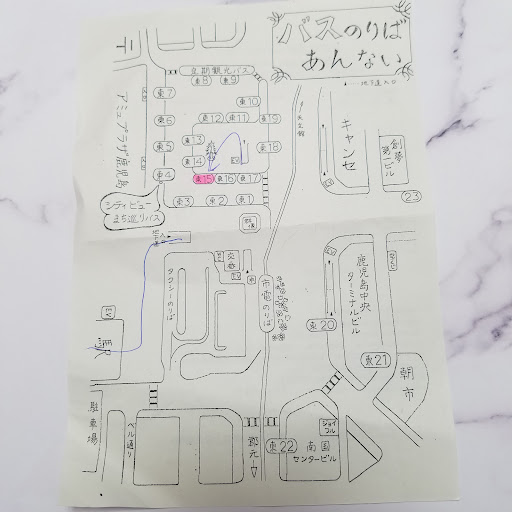 バスのりば
あんない
地下道入口
定期観光バス
東8
東9
東7
東10
東6
東12
東11
東19
東13
東5
東14
東18
EV
東4
東15
東16
東17
東3
東2
東1
アミュプラザ鹿児島
シティビュー
まち巡りバス
天文館
キャンセ
創夢
第一ビル
23
EV
地下道
入口
交番
EV
タクシーのりば
市電のりば
鹿児島中央
ターミナルビル
EV
東20
東21
朝市
EV
駅
駐車場
ベル通り
郡元
東22
ジョイフル
南国
センタービル